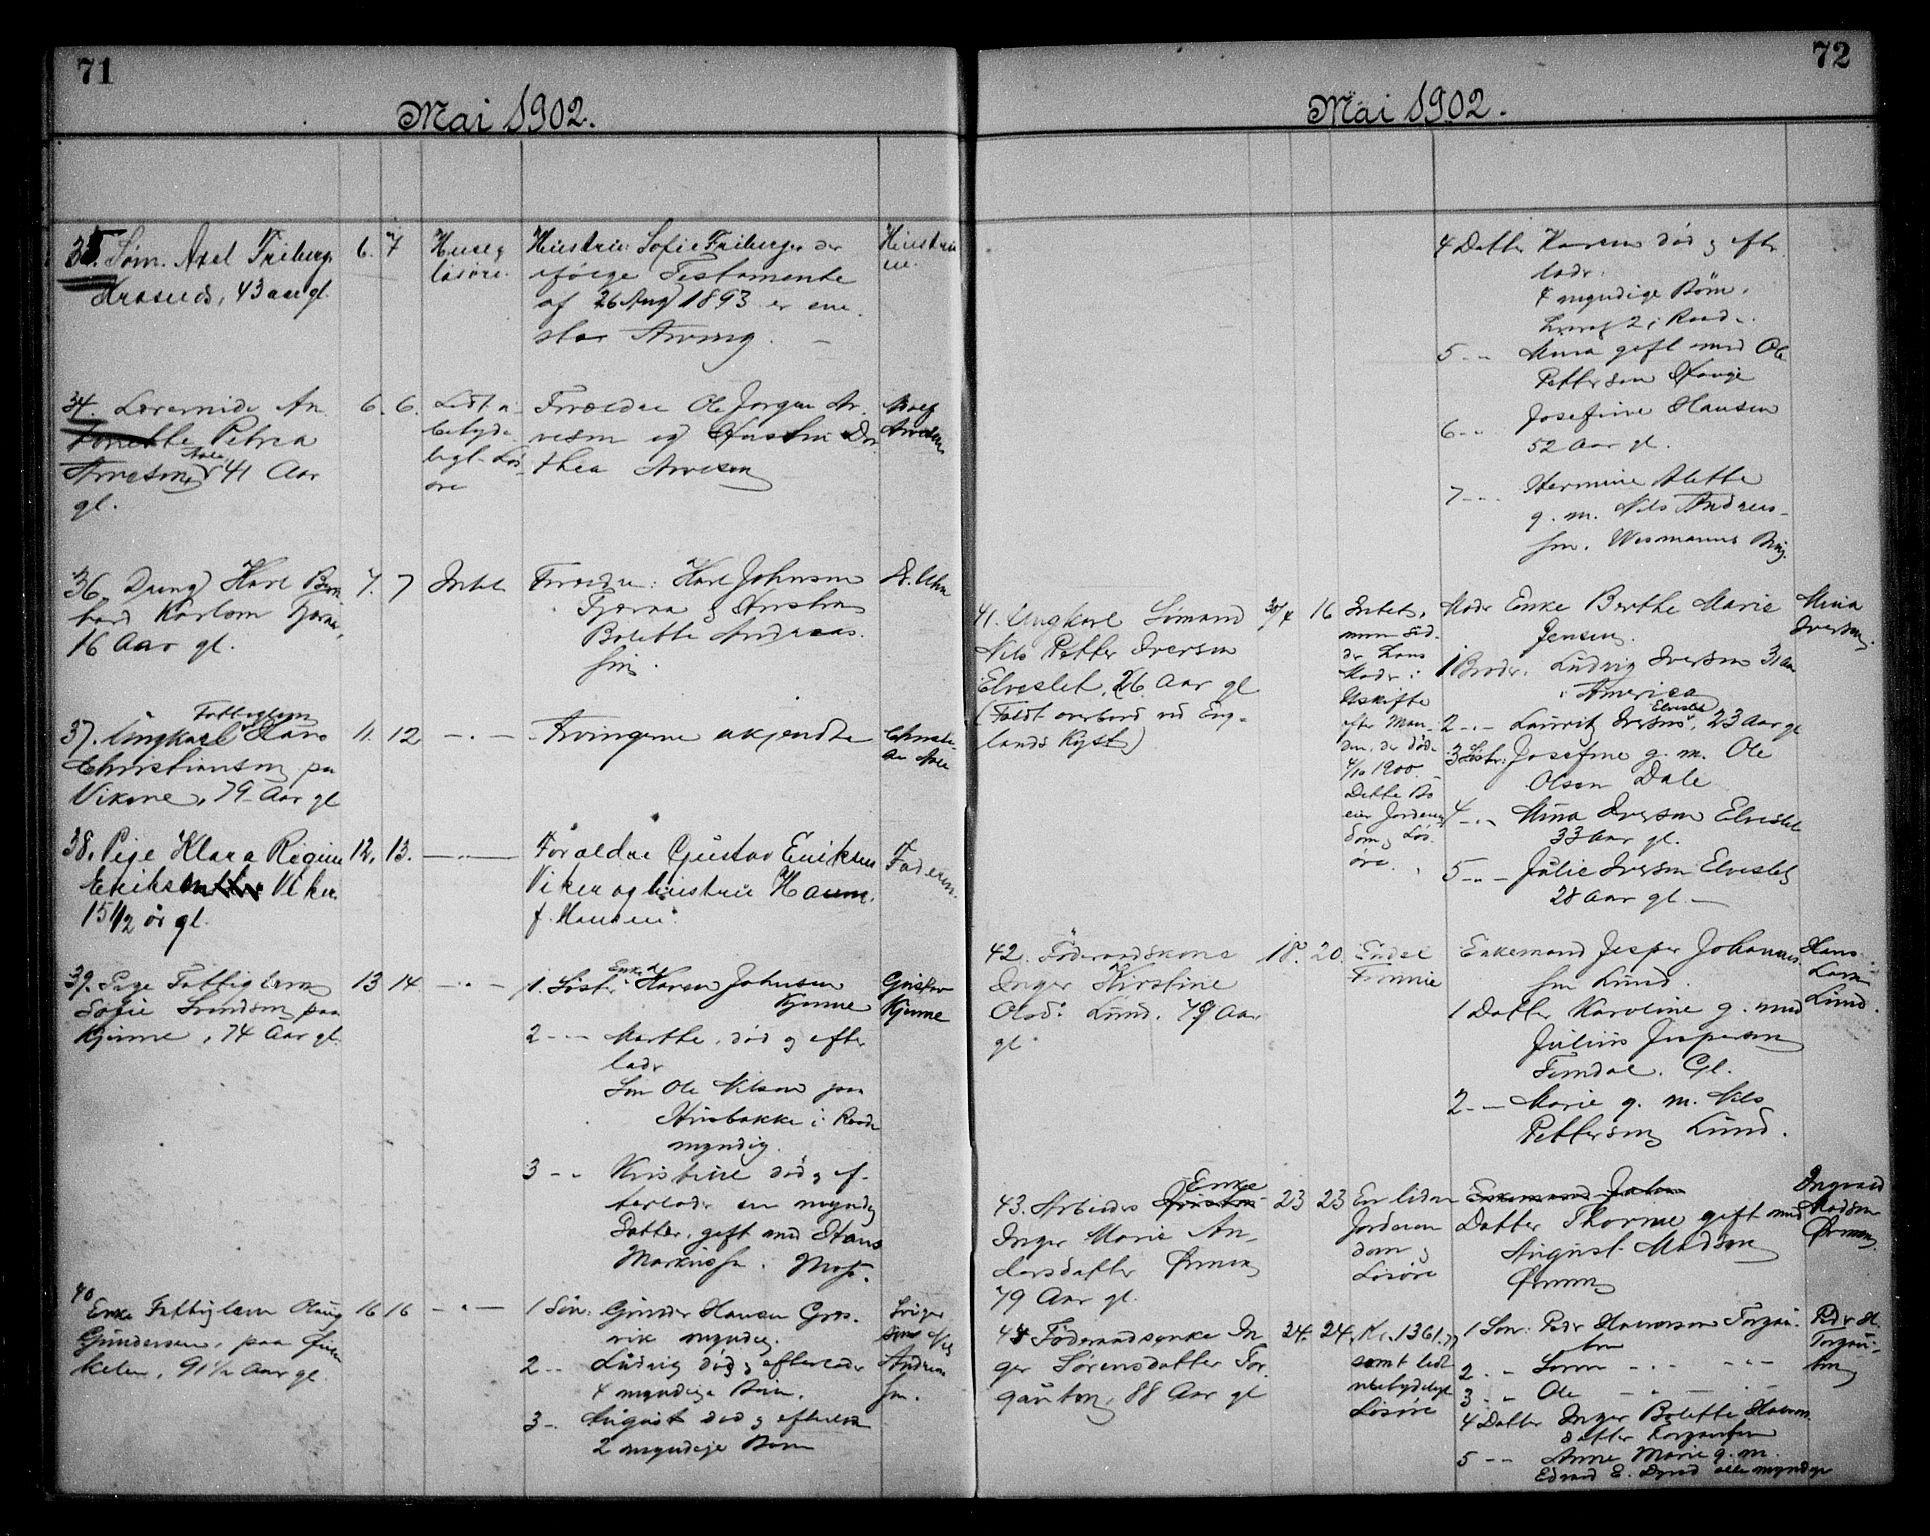 71
Mai 1902.
35. Søm. Axel Friberg
43 aar gl.
6. 7
Hus og
løsøre.
Hustru Sofie Friberg der
ifølge Testamente
af 26 Aug 1893 er ene
Arving.
Hustru
en.
34. An
Petria
Arnesen 41 Aar
gl.
6. 6.
Lidt u
betyde
ligt Løs
øre
Forældre Ole Jørgen Ar
nesen og Hustru Do
thea Arnesen
Adolf
Arnesen
36. Dreng Karl Bern
hard Karlsen
16 Aar gl.
7. 7
Intet
Forældre: Karl Johnsen
& Hustru
Bolette Andreas
sen.
37. Ungkarl Fattiglem Hans
Christiansen paa
Vikene, 79 Aar gl
11. 12
— " —
Arvingerne ukjendte
38. Pige Klara Regine
Eriksen Viker
15 1/2 år gl.
12. 13.
— " —
Forældre Gustav Eriksen
Viker og hustru
f. Hansen.
Faderen.
39. Pige Fattiglem
Sofie Svendsen paa
Kjinne, 74 Aar gl.
13 14
— " —
1. Søster Enke Karen Johnsen
Kjinne
Gustav
Kjinne
2 - - - Marthe, død og efter
lader
Søn Ole Nilsen paa
Husbakke i Raade
myndig.
3 - - Kristine død og ef-
terlader en myndig
Datter, gift med Hans
Markussen. Moss.
40
Enke Fattiglem Olaug
Gundersen, paa
91 1/2 Aar gl.
16 16
— " —
1 Søn: Gunder Hansen
myndig.
2 - - Ludvig død og efterlader
4 myndige Børn.
3 - August død og efterlader
2 myndige Børn
Sviger
Andreas
sen.
72
Mai 1902.
4 Datter Karen død og efter
lader.
4 myndige Børn.
Hvoraf 2 i Raade.
5 - - gift med Ole
Pettersen
6 - - Josefine Hansen
52 Aar gl.
7 - - - Hermine Alette
g. m. Nils Andreas-
sen.
41. Ungkarl Sømand
Nils Petter Iversen
Elveslet, 26 Aar gl
(Faldt overbord ved Eng-
lands Kyst)
30/4 16
Intet,
men sid-
der hans
Moder i
Uskifte
efter Man-
den, der døde
4/10 1900.
Dette Bo
eier Jordeien
dom og Løs
øre.
Moder Enke Berthe Marie
Jensen.
1 Broder. Ludvig Iversen 31 Aar
i America
2 - " - Lauritz Iversen Elveslet, 23 Aar gl
3 Søster: Josefine g. m. Ole
Olsen Dale
4 - " - Mina Iversen Elveslet
33 Aar gl.
5 - " - Julie Iversen Elveslet
28 Aar gl. —
Mina
Iversen.
42. Föderaadskone
Inger Kirstine
Olsd: Lund. 79 Aar
gl
18. 20.
Endel
Enkemand Jesper Johannes-
sen Lund.
1 Datter Karoline g. med
Julius Jespersen
Gl.
2 - - Marie g. m. Nils
Pettersen Lund.
Hans
Lund.
43. Arbeider Enke
Inger Marie An-
dersdatter Ørmen
79 Aar gl.
23 23
En liden
Jordeien
dom og
Løsøre
Enkemand Johan
Datter Thorine gift med
August Madsen
Ørmen
Ingvald
Madsen
Ørmen.
44 Föderaadsenke In
ger Sørensdatter Tor
gauten, 88 Aar gl
24. 24.
Kr. 1361.77
samt lidt
ubetydeligt
Løsøre
1 Søn: Peder Halvorsen Torgau-
ten
2 - " Søren - " - " - " -
3 - " Ole - " - " -
4 Datter Inger Bolette Halvors
datter Torgauten
5 - - Anne Marie g. m.
Edvard E. alle myndige
Peder H.
Torgau-
ten